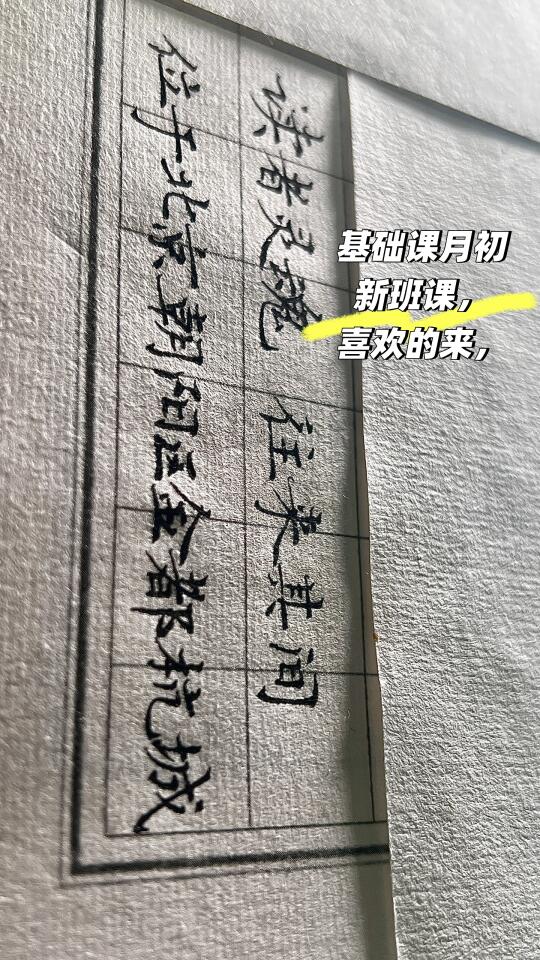 读者灵魂 往来其间
位于北京朝阳区金都杭城
基础课月初
新班课，
喜欢的来，